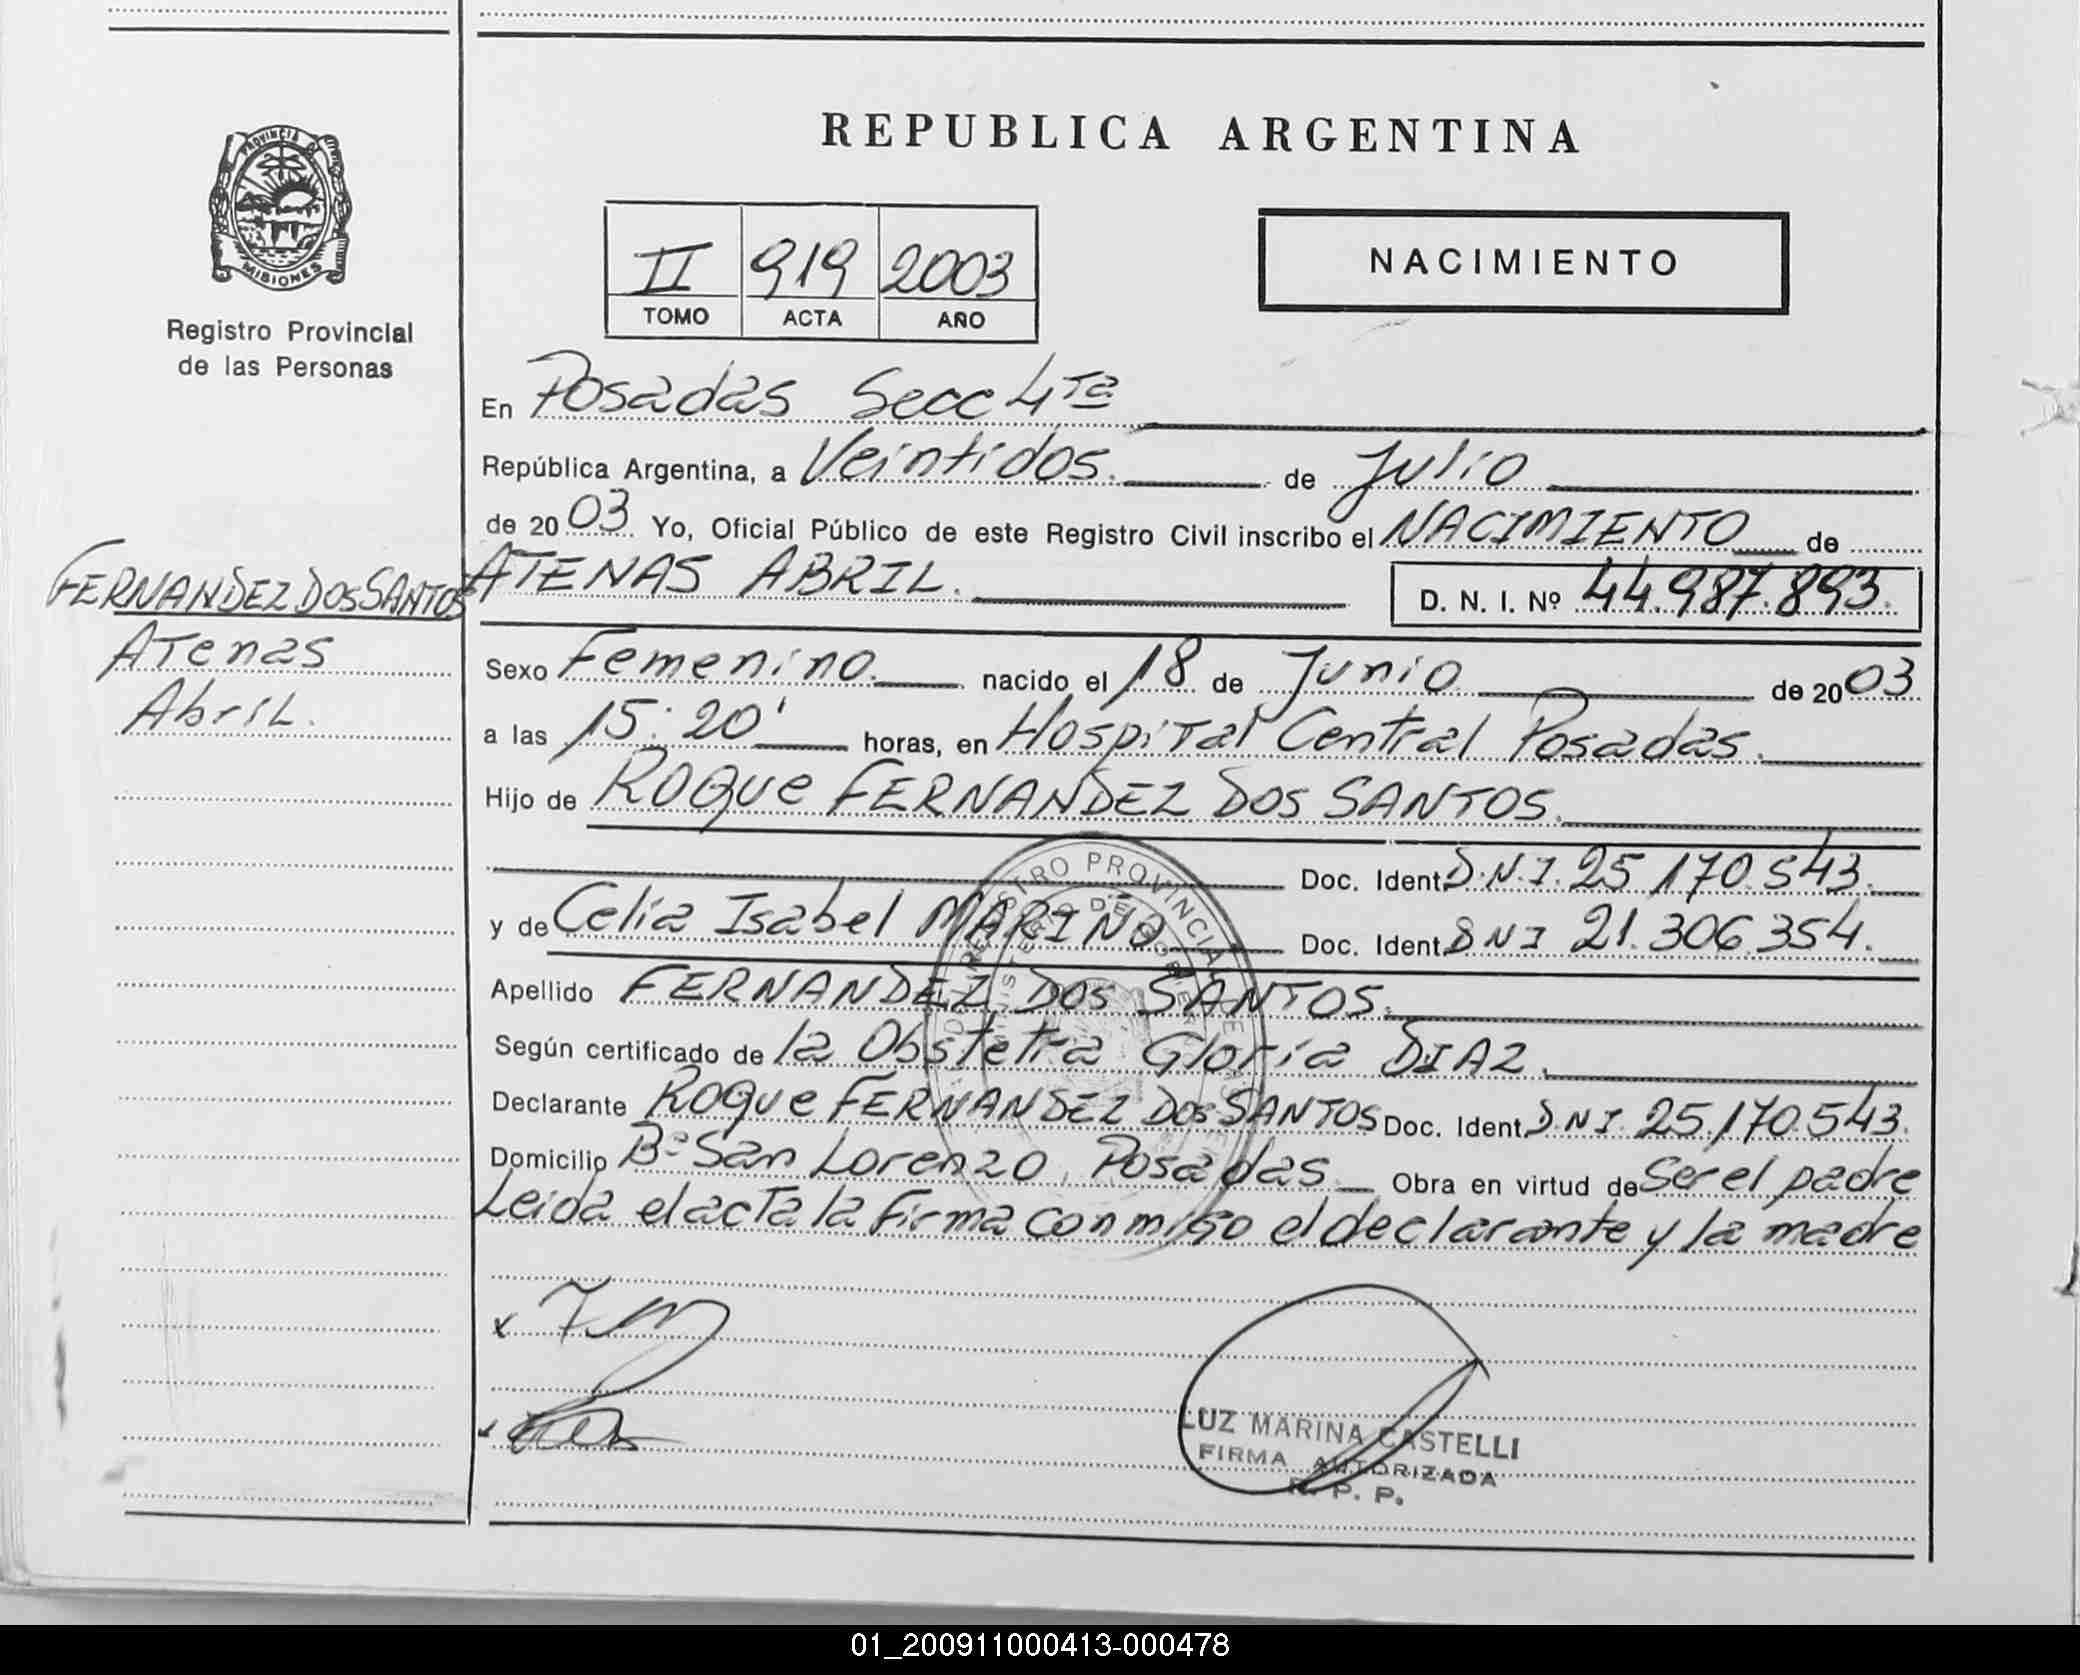 REPUBLICA ARGENTINA
PROVINCIA DE
MISIONES
Registro Provincial
de las Personas
II 919 2003
TOMO ACTA AÑO
NACIMIENTO
En Posadas Secc 4Ta
República Argentina, a Veintidos. de Julio
de 2003 Yo, Oficial Público de este Registro Civil inscribo el NACIMIENTO de
ATENAS ABRIL. D. N. I. Nº 44.987.893.
FERNANDEZ DOS SANTOS
Atenas
Abril.
Sexo Femenino. nacido el 18 de Junio de 2003
a las 15:20' horas, en Hospital Central Posadas.
Hijo de ROQUE FERNANDEZ DOS SANTOS.
Doc. Ident. D.N.I. 25.170.543.
y de Celia Isabel MARINO Doc. Ident. DNI 21.306.354.
Apellido FERNANDEZ DOS SANTOS.
Según certificado de la Obstetra Gloria DIAZ.
Declarante ROQUE FERNANDEZ DOS SANTOS Doc. Ident. D.N.I. 25.170.543.
Domicilio Bº San Lorenzo, Posadas Obra en virtud de Ser el padre
Leida el acta la firma conmigo el declarante y la madre
REGISTRO PROVINCIAL DE
LUZ MARINA CASTELLI
FIRMA AUTORIZADA
R. P. P.
01_200911000413-000478